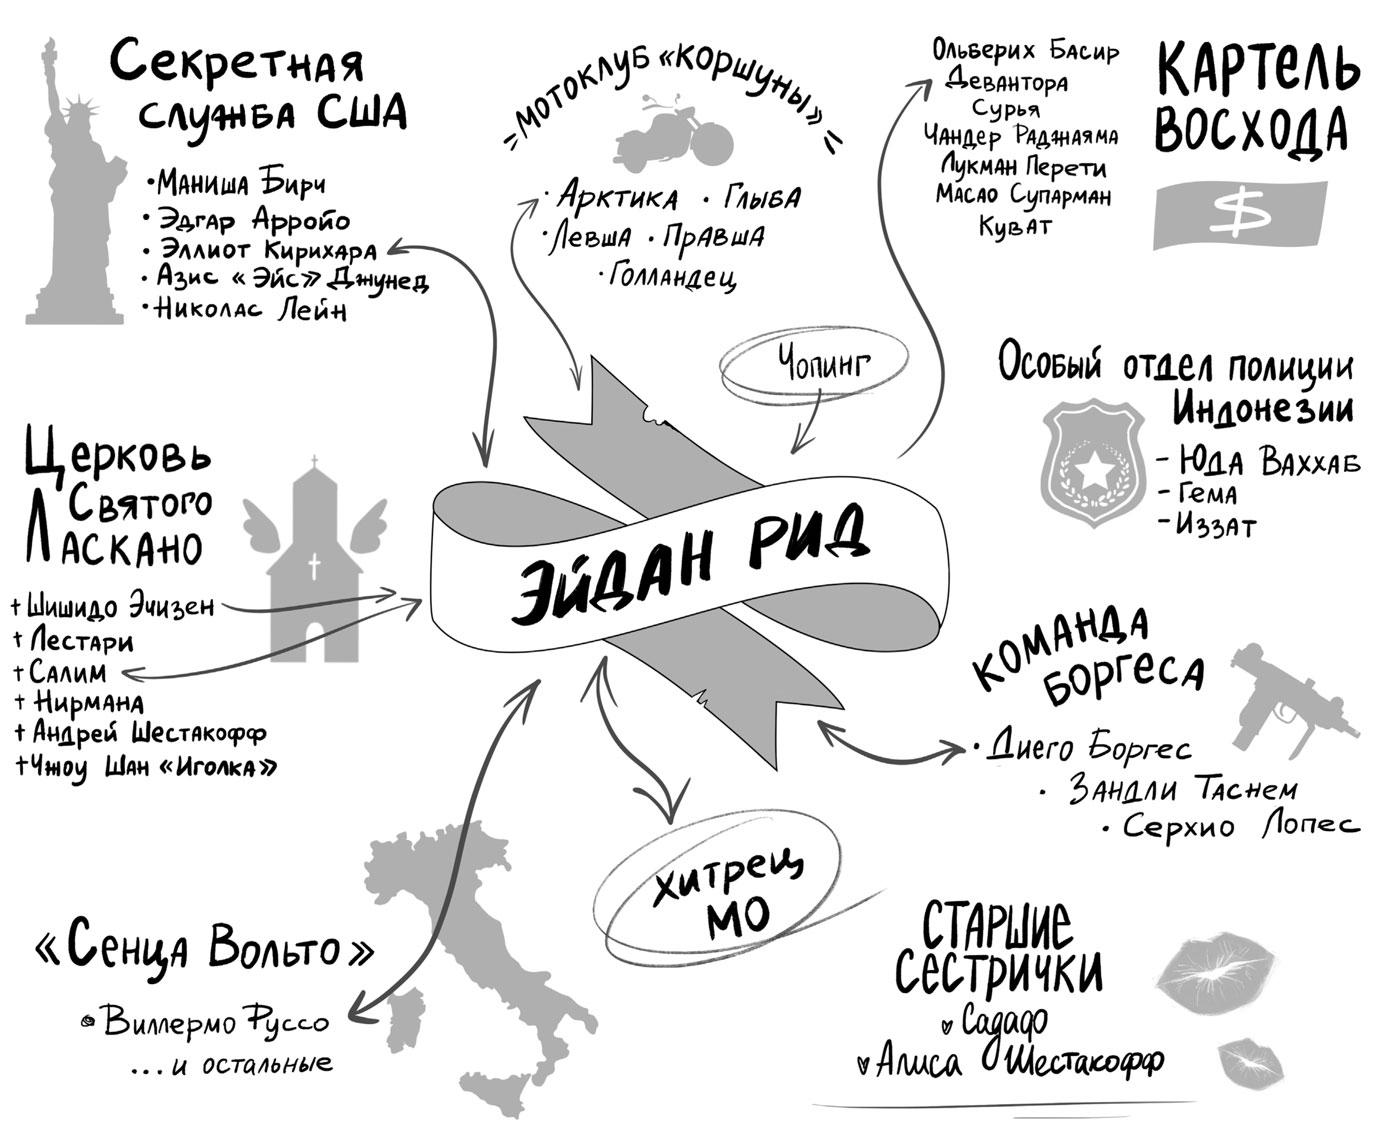 Секретная
служба США
• Маниша Бирч
• Эдгар Арройо
• Эллиот Кирихара
• Азис «Эйс» Джунед
• Николас Лейн
мотоклуб «Коршуны»
• Арктика • Глыба
• Левша • Правша
• Голландец
Ольберих Басир
Девантора
Сурья
Чандер Раджаяма
Лукман Перети
Масао Супарман
Куват
Картель
Восхода
$
Чопинг
Особый отдел полиции
Индонезии
- Юда Ваххаб
- Гема
- Иззат
Церковь
Святого
Ласкано
+ Шишидо Эчизен
+ Лестари
+ Салим
+ Нирмана
+ Андрей Шестакофф
+ Чжоу Шан «Иголка»
Эйдан Рид
Команда
Боргеса
• Диего Боргес
• Зандли Таснем
• Серхио Лопес
хитрец
МО
«Сенца Вольто»
• Виллермо Руссо
...и остальные
Старшие
Сестрички
Садафо
Алиса Шестакофф